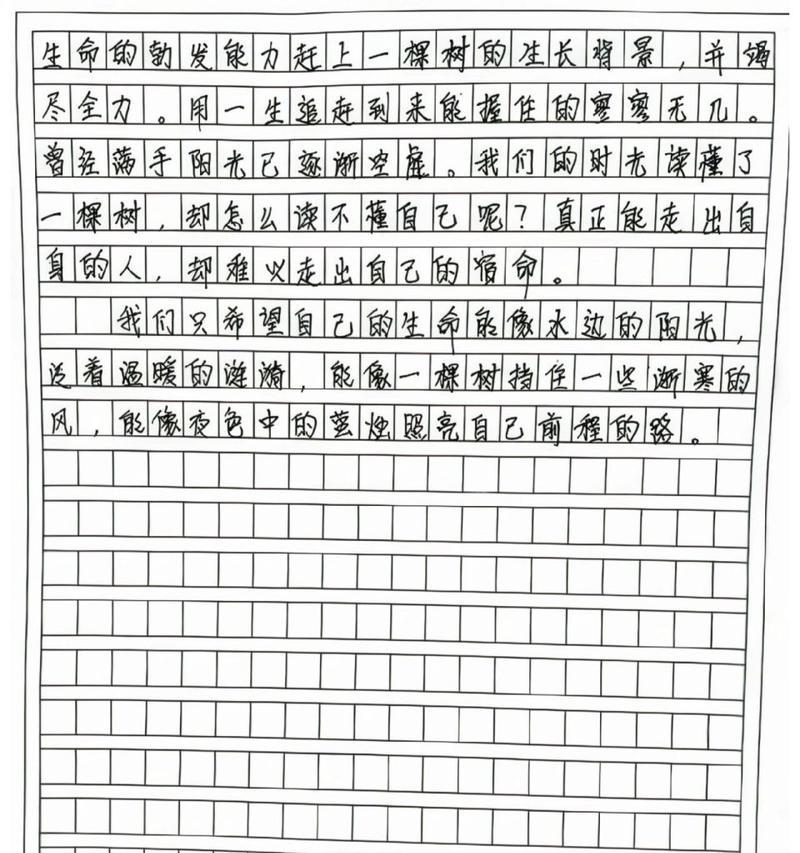 生命的勃发能力赶上一棵树的生长背景，并竭
尽全力。用一生追赶到来能握住的寥寥无几。
曾经满手阳光已逐渐空虚。我们的时光读懂了
一棵树，却怎么读不懂自己呢？真正能走出自
身的人，却难以走出自己的宿命。
我们只希望自己的生命能像水边的阳光，
泛着温暖的涟漪，能像一棵树挡住一些渐寒的
风，能像夜色中的萤烛照亮自己前程的路。